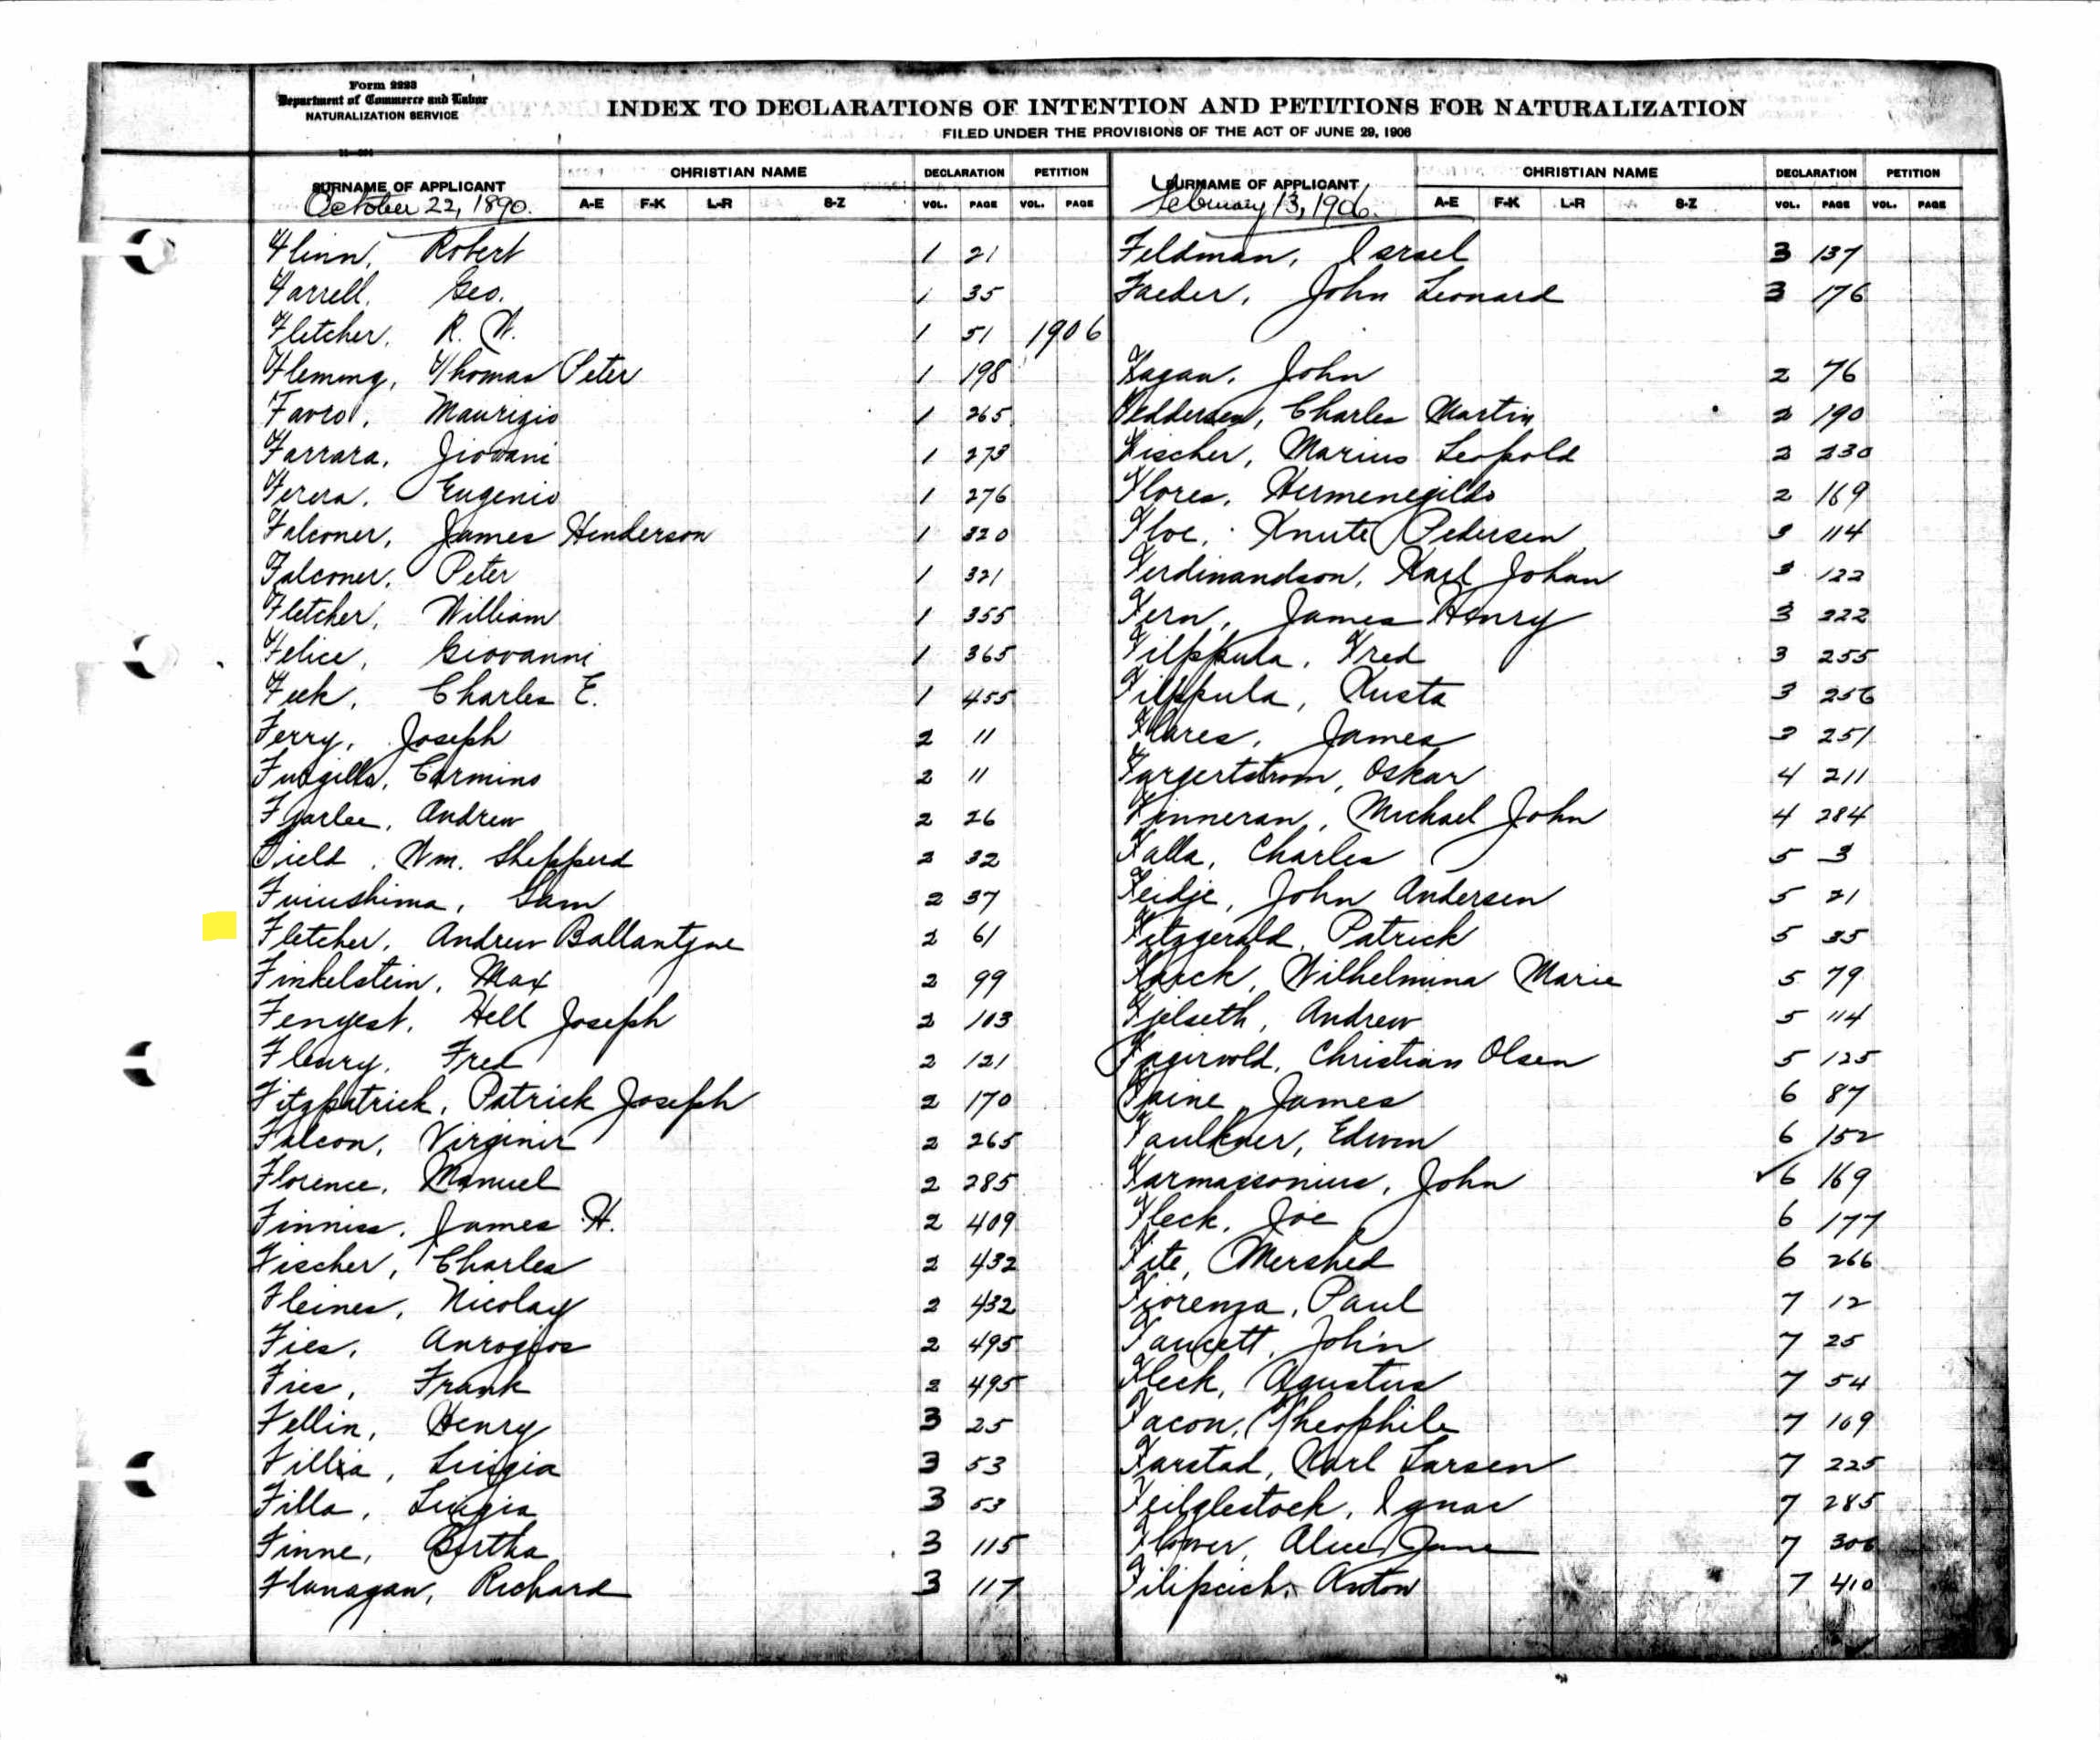 Form 2223
Department of Commerce and Labor
NATURALIZATION SERVICE
INDEX TO DECLARATIONS OF INTENTION AND PETITIONS FOR NATURALIZATION
FILED UNDER THE PROVISIONS OF THE ACT OF JUNE 29, 1906
SURNAME OF APPLICANT CHRISTIAN NAME DECLARATION PETITION
October 22, 1890. A-E F-K L-R S-Z VOL. PAGE VOL. PAGE
Flinn, Robert 1 21
Farrell, Geo. 1 35
Fletcher, R. W. 1 51 1906
Fleming, Thomas Peter 1 198
Favro, Maurizio 1 265
Farrara, Jiovani 1 273
Ferera, Eugenio 1 276
Falconer, James Henderson 1 320
Falconer, Peter 1 321
Fletcher, William 1 355
Felice, Giovanni 1 365
Feek, Charles E. 1 455
Ferry, Joseph 2 11
Carmino 2 11
Fjarlee, Andrew 2 26
Field, Wm. Shepperd 2 32
Furushima, Sam 2 37
Fletcher, Andrew Ballantyne 2 61
Finkelstein, Max 2 99
Fenyest, Hell Joseph 2 103
Fleury, Fred 2 121
Fitzpatrick, Patrick Joseph 2 170
Falcon, Virginir 2 265
Florence, Manuel 2 285
Finniss, James H. 2 409
Fischer, Charles 2 432
Fleines, Nicolay 2 432
Fies, 2 495
Fies, Frank 2 495
Fellin, Henry 3 25
Fillia, Luigia 3 53
Filla, Luigia 3 53
Finne, Bertha 3 115
Flanagan, Richard 3 117
SURNAME OF APPLICANT CHRISTIAN NAME DECLARATION PETITION
February 13, 1906. A-E F-K L-R S-Z VOL. PAGE VOL. PAGE
Feldman, Israel 3 137
Faeder, John Leonard 3 176
Fagan, John 2 76
Feddersen, Charles Martin 2 190
Fischer, Marius Leopold 2 230
Flores, Hermenegildo 2 169
Floe, Knute Pedersen 3 114
Ferdinandson, Karl Johan 3 122
Fern, James Henry 3 222
Filppula, Fred 3 255
Filppula, Kusta 3 256
Flares, James 3 251
Fargertstrom, Oskar 4 211
Finneran, Michael John 4 284
Falla, Charles 5 3
Feidje, John Andersen 5 21
Fitzgerald, Patrick 5 35
Wilhelmina Marie 5 79
Fjelseth, Andrew 5 114
Fagerwold, Christian Olsen 5 125
Faine, James 6 87
Faulkner, Edwin 6 152
Farmassonius, John 6 169
Fleck, Joe 6 177
Fite, Mershed 6 266
Fiorenza, Paul 7 12
Faucett, John 7 25
Fleck, Agustus 7 54
Facon, Theophile 7 169
Farstad, Karl Larsen 7 225
Feilglestock, Ignac 7 285
Flower, Alice Jane 7 306
Filipcich, Anton 7 410